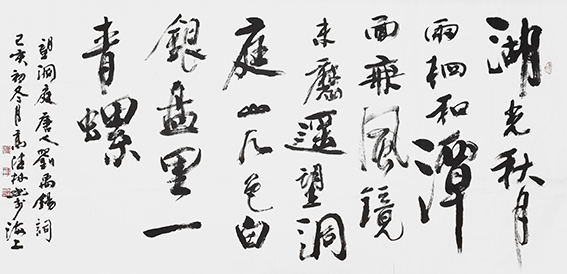 湖光秋月
兩相和潭
面無風鏡
未磨遥望洞
庭山水色白
銀盤里一
青螺
望洞庭唐人劉禹錫詞
己亥初冬月高林書於海上